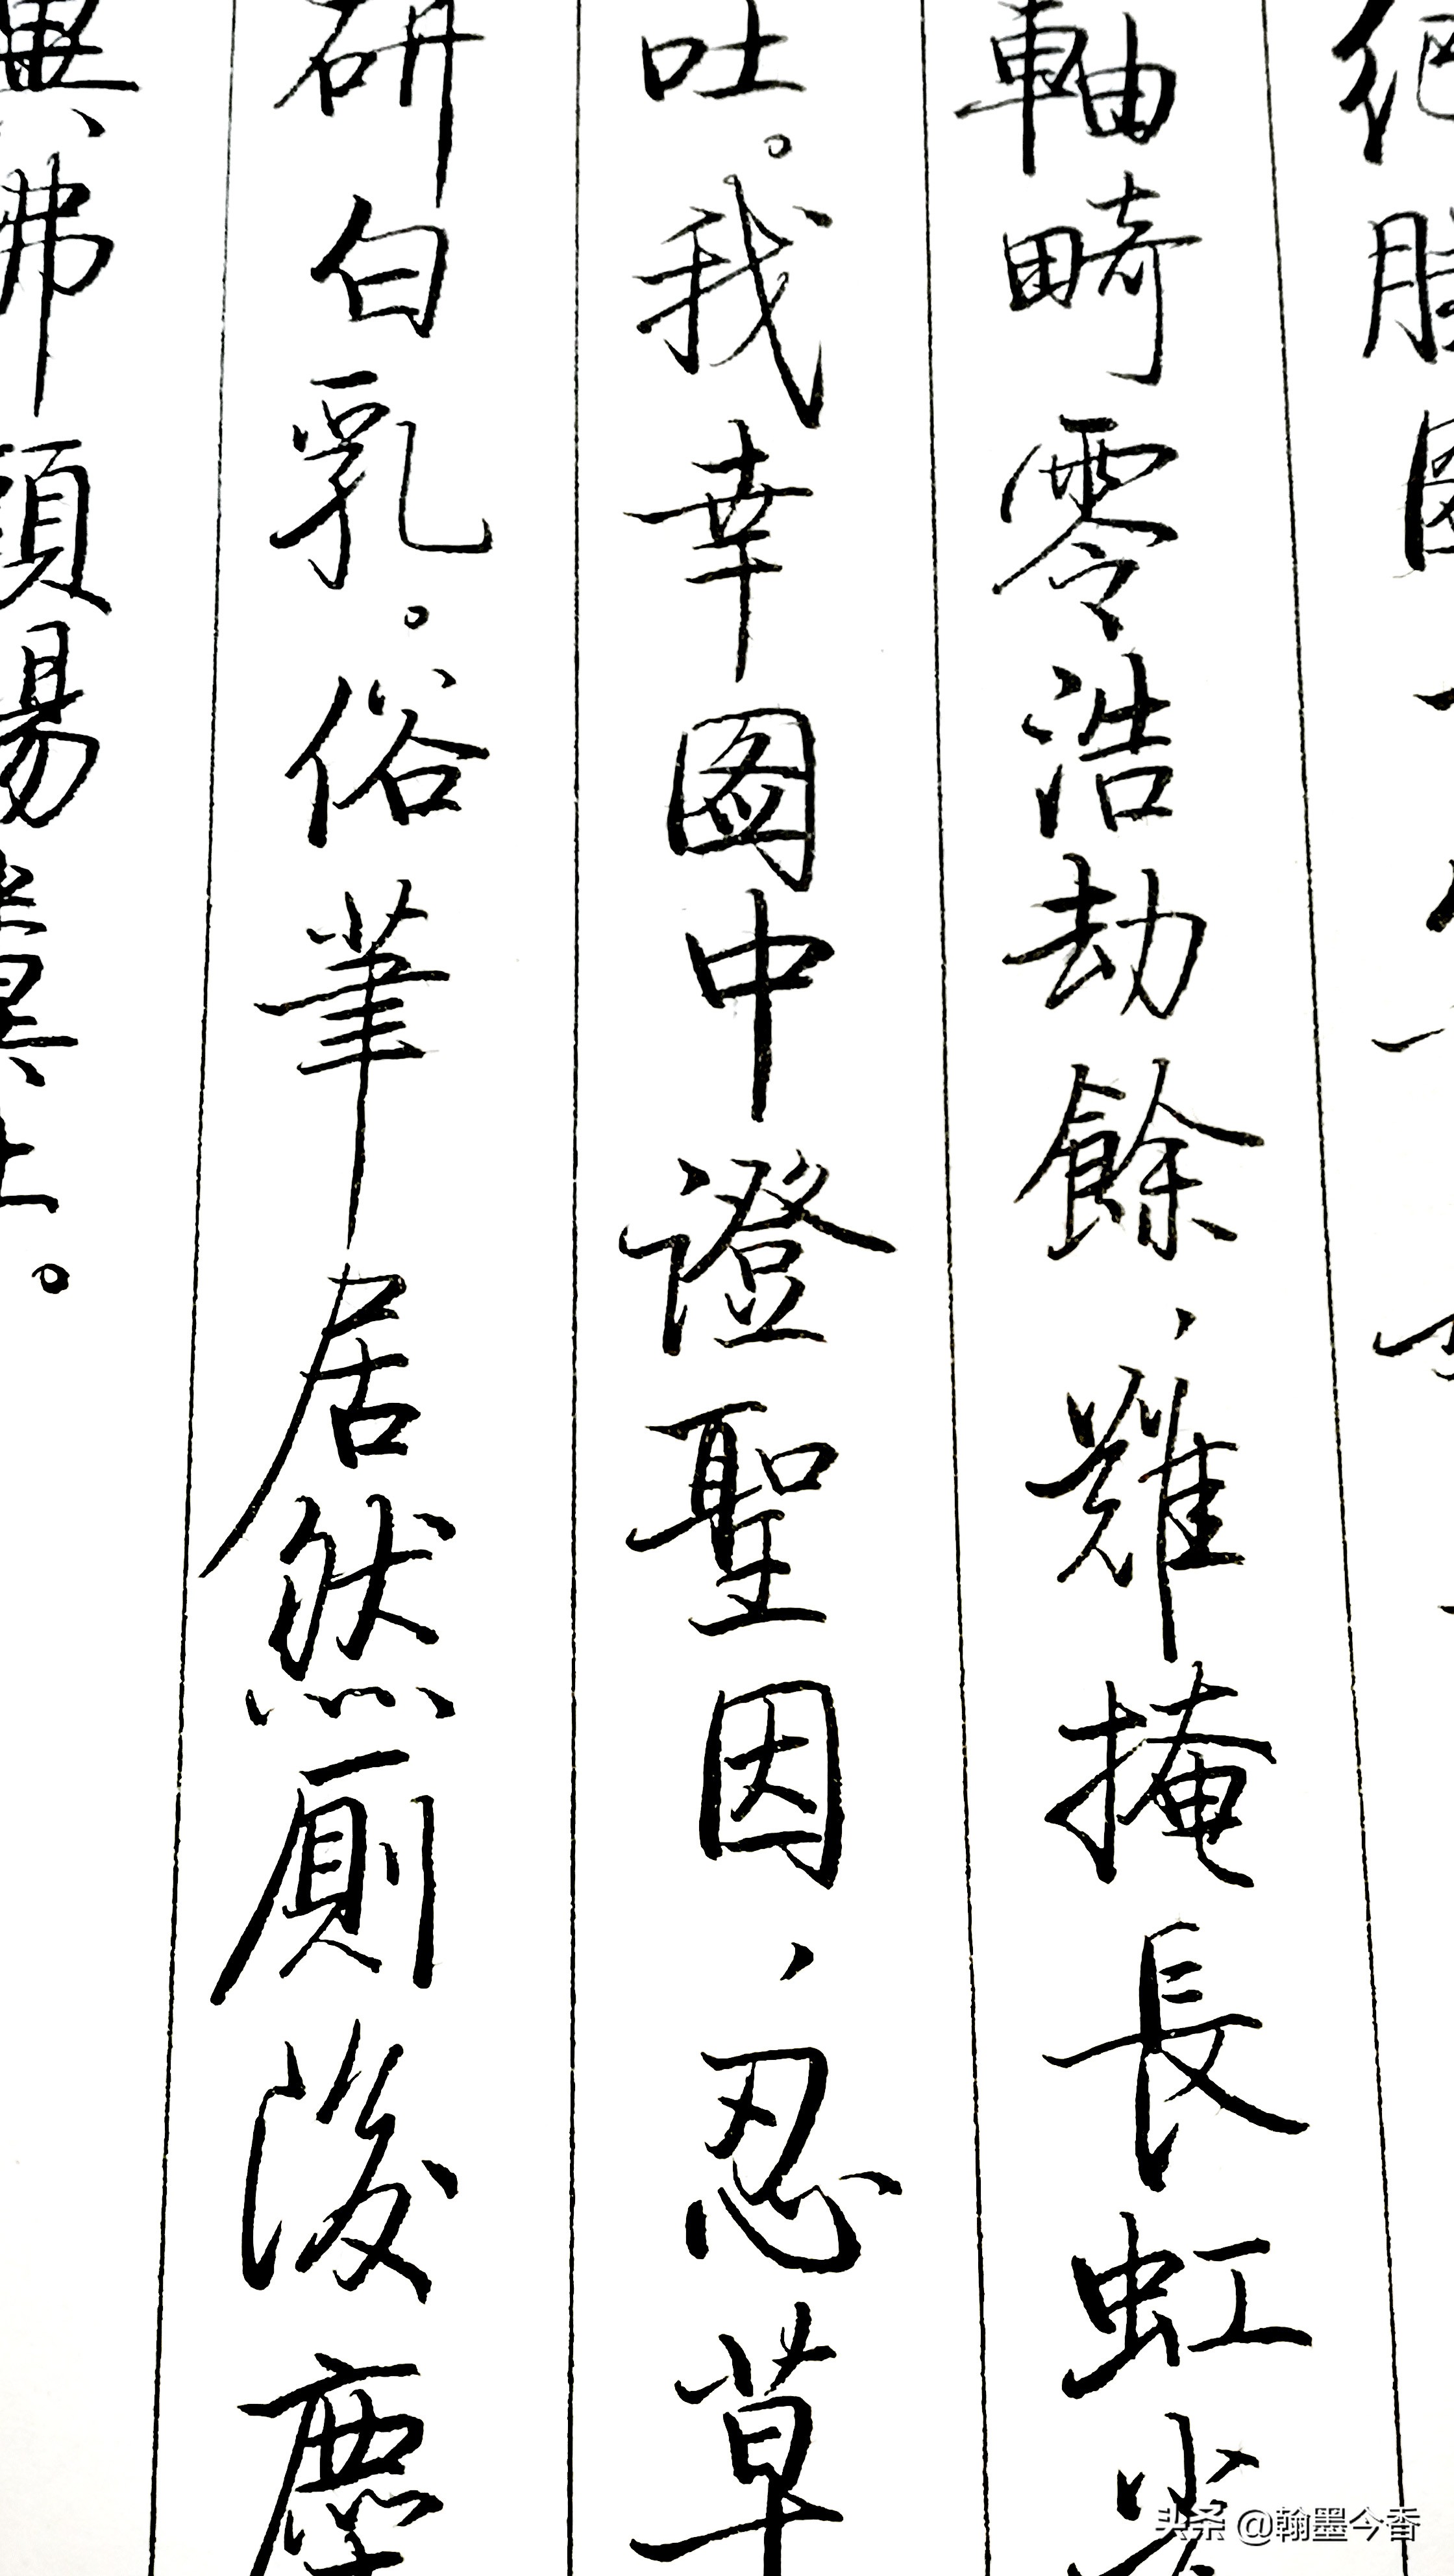 軸畸零浩劫餘、難掩長虹
吐。我幸圖中證聖因、忍草
研白乳。俗筆居然厠後塵
頭湯
头条 @翰墨今香